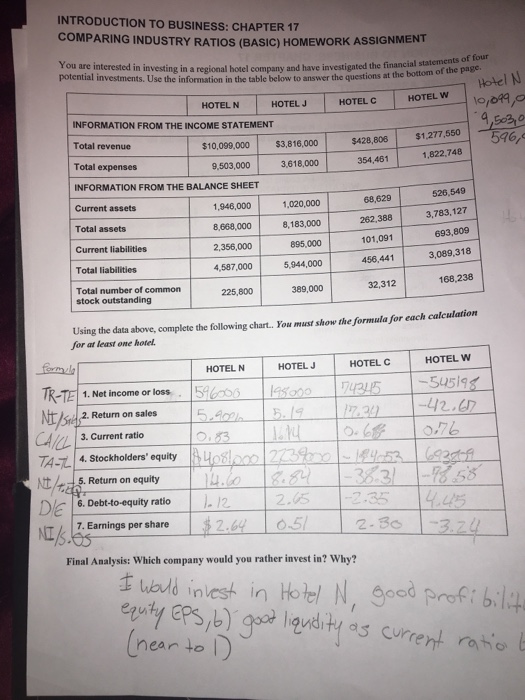 INTRODUCTION TO BUSINESS: CHAPTER 17
COMPARING INDUSTRY RATIOS (BASIC) HOMEWORK ASSIGNMENT
You are interested in investing in a regional hotel company and have investigated the financial statements of four
potential investments. Use the information in the table below to answer the questions at the bottom of the page.
Hotel N
10,099,0
- 9,503,0
596,
HOTEL N HOTEL J HOTEL C HOTEL W
INFORMATION FROM THE INCOME STATEMENT
Total revenue $10,099,000 $3,816,000 $428,806 $1,277,550
Total expenses 9,503,000 3,618,000 354,461 1,822,748
INFORMATION FROM THE BALANCE SHEET
Current assets 1,946,000 1,020,000 68,629 526,549
Total assets 8,668,000 8,183,000 262,388 3,783,127
Current liabilities 2,356,000 895,000 101,091 693,809
Total liabilities 4,587,000 5,944,000 456,441 3,089,318
Total number of common stock outstanding 225,800 389,000 32,312 168,238
Using the data above, complete the following chart.. You must show the formula for each calculation
for at least one hotel.
formula HOTEL N HOTEL J HOTEL C HOTEL W
TR-TE 1. Net income or loss 596000 74345 -545198
2. Return on sales 5.19 17.34 -42.67
CA/CL 3. Current ratio 0.83 1.14 0.68 0.76
TA-TL 4. Stockholders' equity
5. Return on equity 14.60 8.84 -38.31
D/E 6. Debt-to-equity ratio 1.12 2.65 -2.35 4.45
NI/S.OS 7. Earnings per share $2.64 0.51 2.30 -3.24
Final Analysis: Which company would you rather invest in? Why?
I would invest in Hotel N, good profibilit
equity EPS, b) good liquidity as current ratio
(near to 1)